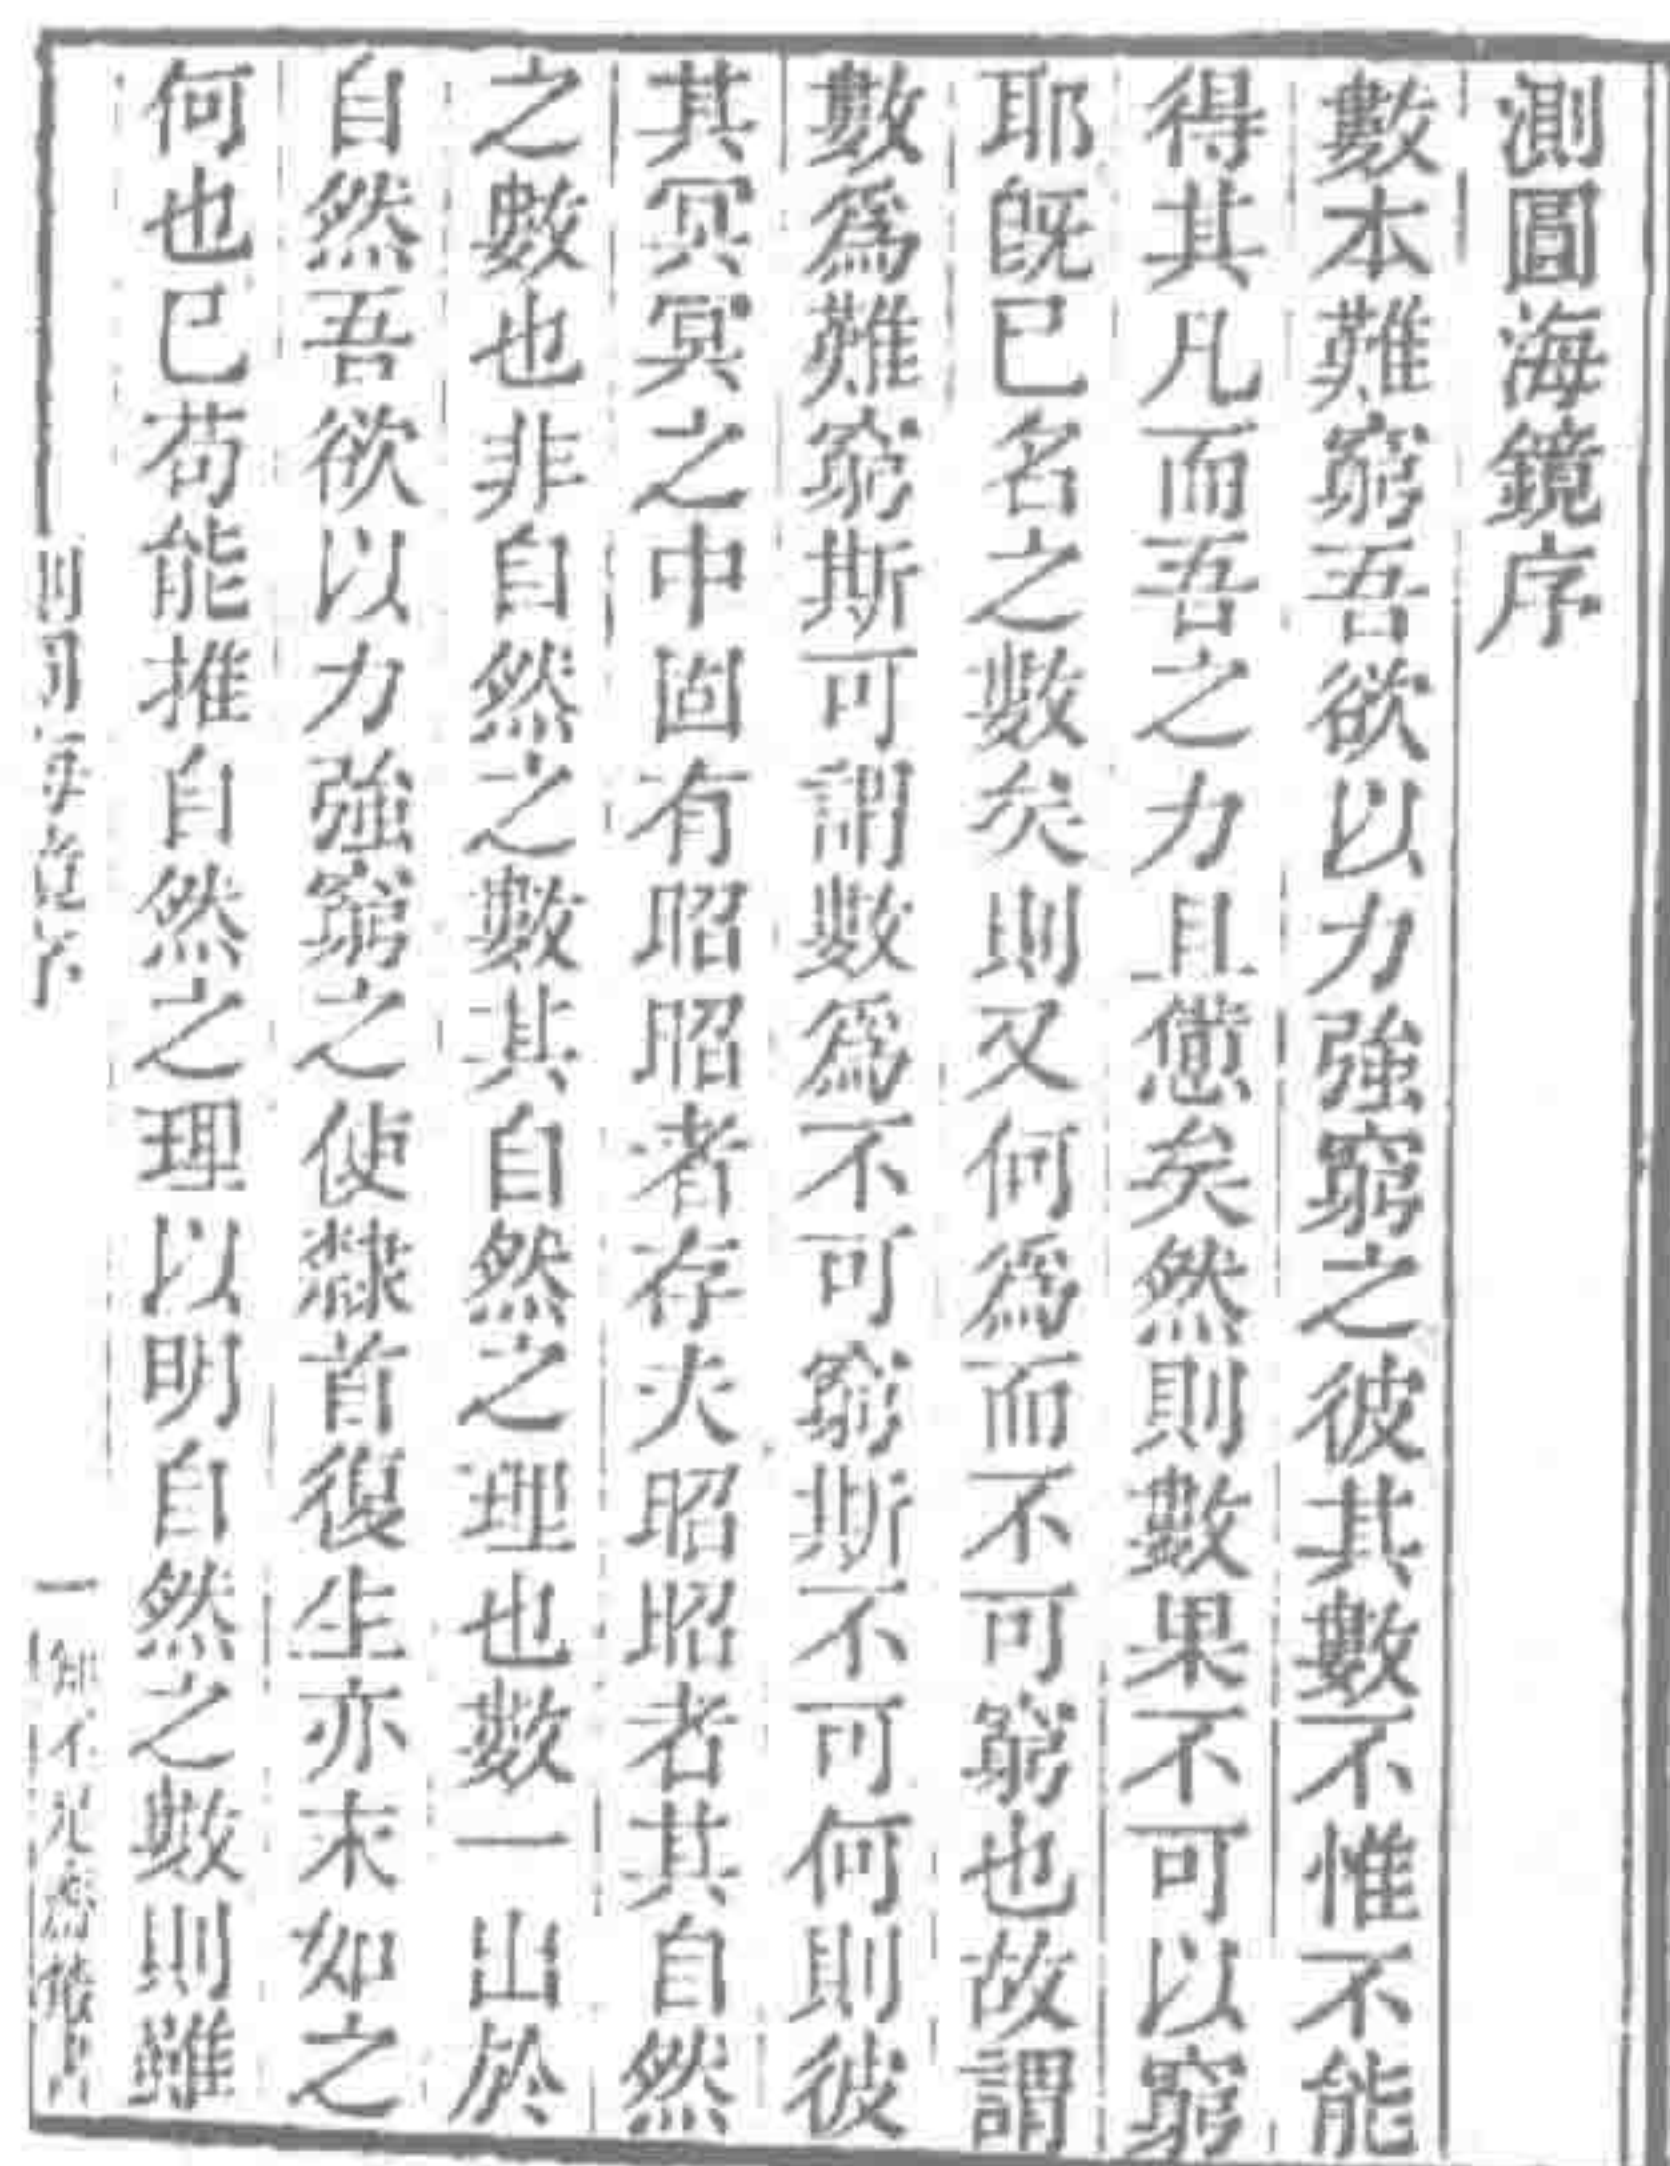 測圓海鏡序
數本難窮吾欲以力強窮之彼其數不惟不能
得其凡而吾之力且憊矣然則數果不可以窮
耶旣已名之數矣則又何爲而不可窮也故謂
數爲難窮斯可謂數爲不可窮斯不可何則彼
其冥冥之中固有昭昭者存夫昭昭者其自然
之數也非自然之數其自然之理也數一出於
自然吾欲以力強窮之使隸首復生亦末如之
何也已苟能推自然之理以明自然之數則雖
一
知不足齋叢書